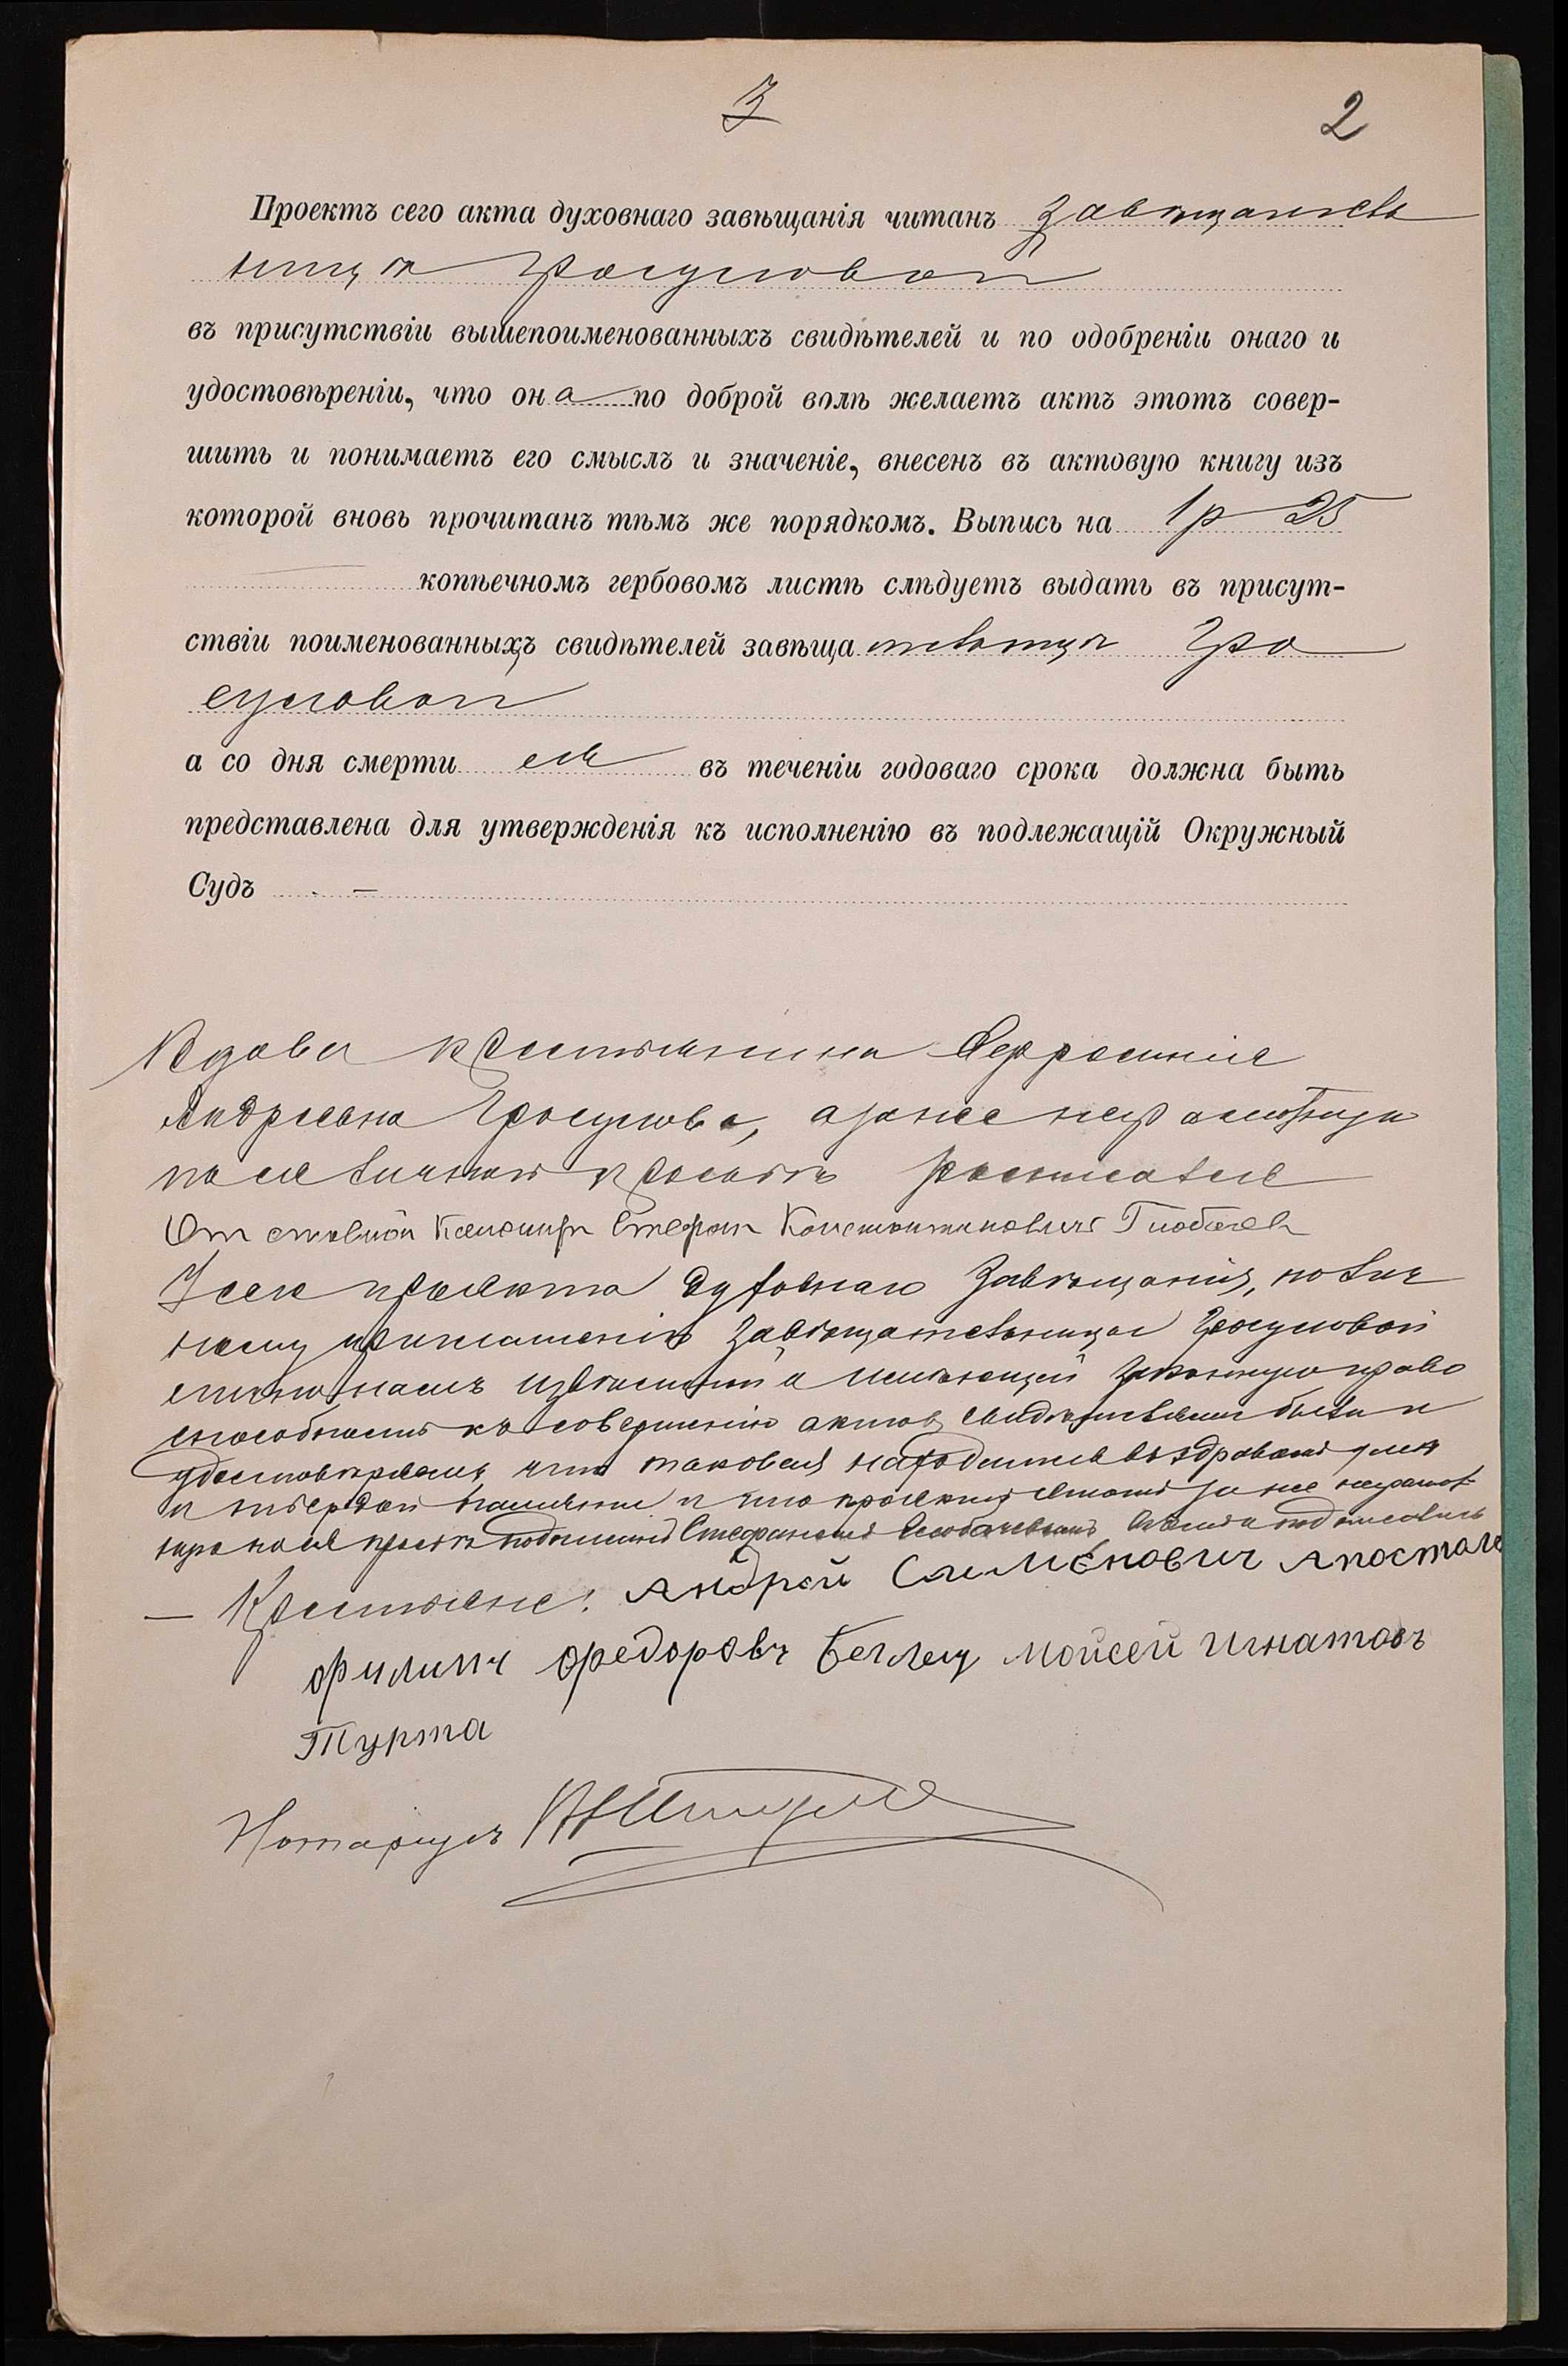 3
2
Проектъ сего акта духовнаго завѣщанія читанъ завѣщатель
ницѣ Гросуловой
въ присутствіи вышепоименованныхъ свидѣтелей и по одобреніи онаго и
удостовѣреніи, что она по доброй волѣ желаетъ актъ этотъ совер-
шить и понимаетъ его смыслъ и значеніе, внесенъ въ актовую книгу изъ
которой вновь прочитанъ тѣмъ же порядкомъ. Выпись на 1 р 25
копѣечномъ гербовомъ листѣ слѣдуетъ выдать въ присут-
ствіи поименованныхъ свидѣтелей завѣщательницѣ Гро
суловой
а со дня смерти ея въ теченіи годоваго срока должна быть
представлена для утвержденія къ исполненію въ подлежащій Окружный
Судъ —
Вдова крестьянина
Андреевна Гросулова, а за нее неграмотную
по ея личной просьбѣ росписался
Стефан Константиновичъ
У сего проекта духовнаго завѣщанія, по лич
ному приглашенію завѣщательницы Гросуловой
лично намъ извѣстной и имѣющей законную право
способность къ совершенію актов, свидѣтелями были и
удостовѣряемъ, что таковая находится въ здравомъ умѣ
и твердой памяти и что проектъ этотъ за нее неграмот
ную по ея просьбѣ подписанъ Стефаномъ
— Крестьяне: Андрей Семенович Апостол
Филипъ Федоровъ Беглец Мойсей Игнатовъ
Турта
Нотаріусъ